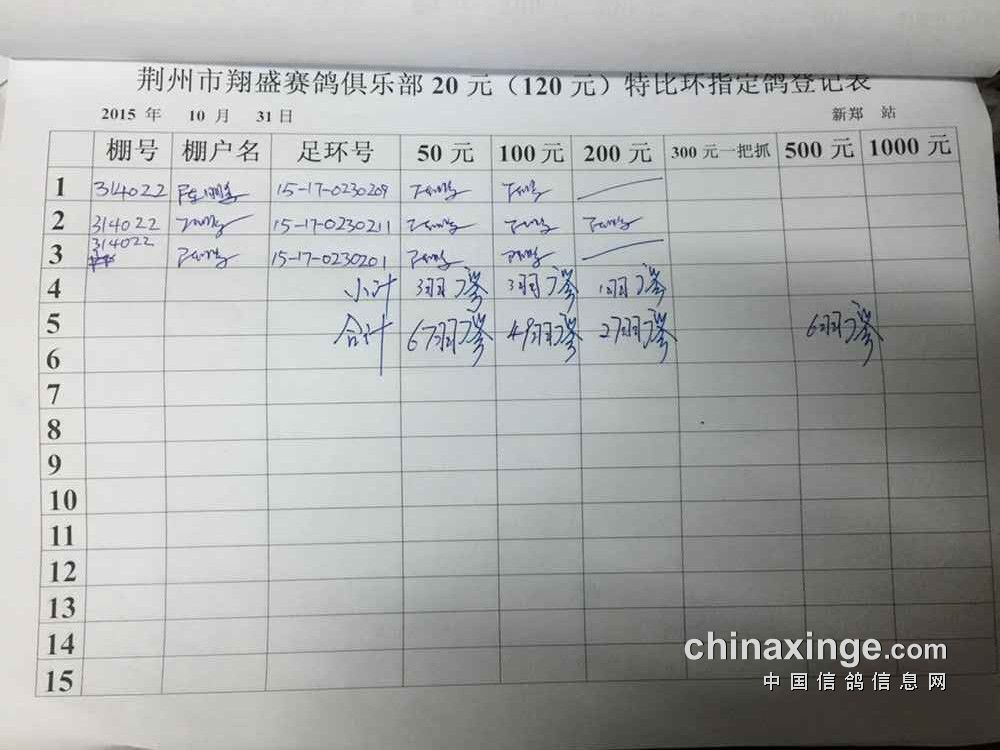 荆州市翔盛赛鸽俱乐部20元（120元）特比环指定鸽登记表
2015 年 10 月 31 日 新郑 站
棚号 棚户名 足环号 50 元 100 元 200 元 300 元一把抓 500 元 1000 元
1 314022 15-17-0230209
2 314022 15-17-0230211
314022
3 15-17-0230201
4 小计 3羽 3羽 1羽
5 合计 67羽 49羽 27羽 6羽
6
7
8
9
10
11
12
13
14
15
chinaxinge.com
中国信鸽信息网